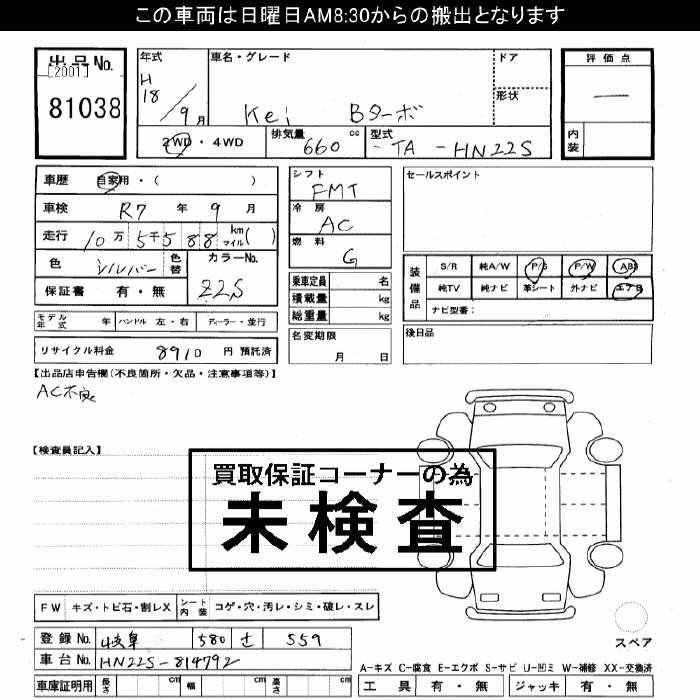 この車両は日曜日AM8:30からの搬出となります
出品No.
[2001]
81038
年式
H
18/9月
車名・グレード
Kei Bターボ
ドア
形状
2WD・4WD
排気量
660cc
型式
TA-HN22S
評価点
―
内装
車歴 自家用・( )
車検 R7年9月
走行 10万5千588km マイル( )
色 シルバー 色替
カラーNo.
Z2S
保証書 有・無
モデル年式 年 ハンドル 左・右 ディーラー・並行
リサイクル料金 8910円 預託済
シフト
FMT
冷房
AC
燃料
G
乗車定員 名
積載量 kg
総重量 kg
名変期限
月 日
セールスポイント
装備品
S/R 純A/W P/S P/W ABS
純TV 純ナビ 革シート 外ナビ エアB
ナビ型番:
後日品
【出品店申告欄(不良箇所・欠品・注意事項等)】
AC不良
【検査員記入】
買取保証コーナーの為
未検査
FW キズ・トビ石・割レX シート内装 コゲ・穴・汚レ・シミ・破レ・スレ
登録No. 岐阜 580 せ 559
車台No. HN22S-814792
車庫証明用 長さ cm 幅 cm 高さ cm
スペア
A-キズ C-腐食 E-エクボ S-サビ U-凹ミ W-補修 XX-交換済
工具 有・無 ジャッキ 有・無